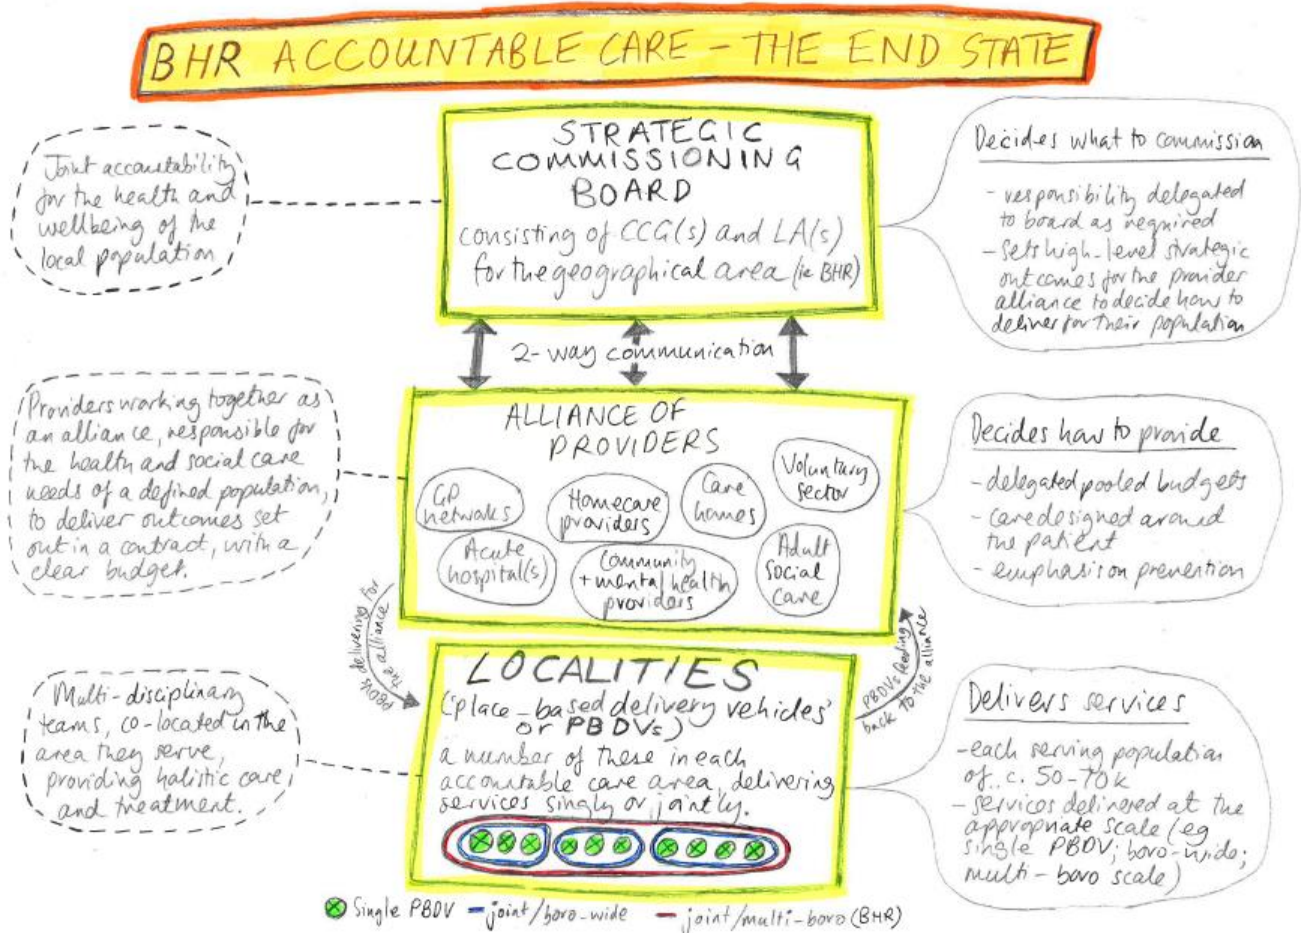 BHR ACCOUNTABLE CARE - THE END STATE
Joint accountability
for the health and
wellbeing of the
local population
STRATEGIC
COMMISSIONING
BOARD
consisting of CCG(s) and LA(s)
for the geographical area (ie BHR)
Decides what to commission
- responsibility delegated
to board as required
- sets high-level strategic
outcomes for the provider
alliance to decide how to
deliver for their population
2-way communication
Providers working together as
an alliance, responsible for
the health and social care
needs of a defined population,
to deliver outcomes set
out in a contract, with a
clear budget.
ALLIANCE OF
PROVIDERS
GP
networks
Homecare
providers
Care
homes
Voluntary
sector
Acute
hospital(s)
Community
+ mental health
providers
Adult
social
care
Decides how to provide
- delegated pooled budgets
- care designed around
the patient
- emphasis on prevention
PBDVs delivering for
the alliance
PBDVs feeding
back to the alliance
Multi-disciplinary
teams, co-located in the
area they serve,
providing holistic care
and treatment.
LOCALITIES
('place-based delivery vehicles'
or PBDVs)
a number of these in each
accountable care area, delivering
services singly or jointly.
Delivers services
- each serving population
of c. 50-70k
- services delivered at the
appropriate scale (eg
single PBDV; boro-wide;
multi-boro scale)
Single PBDV - joint/boro-wide - joint/multi-boro (BHR)